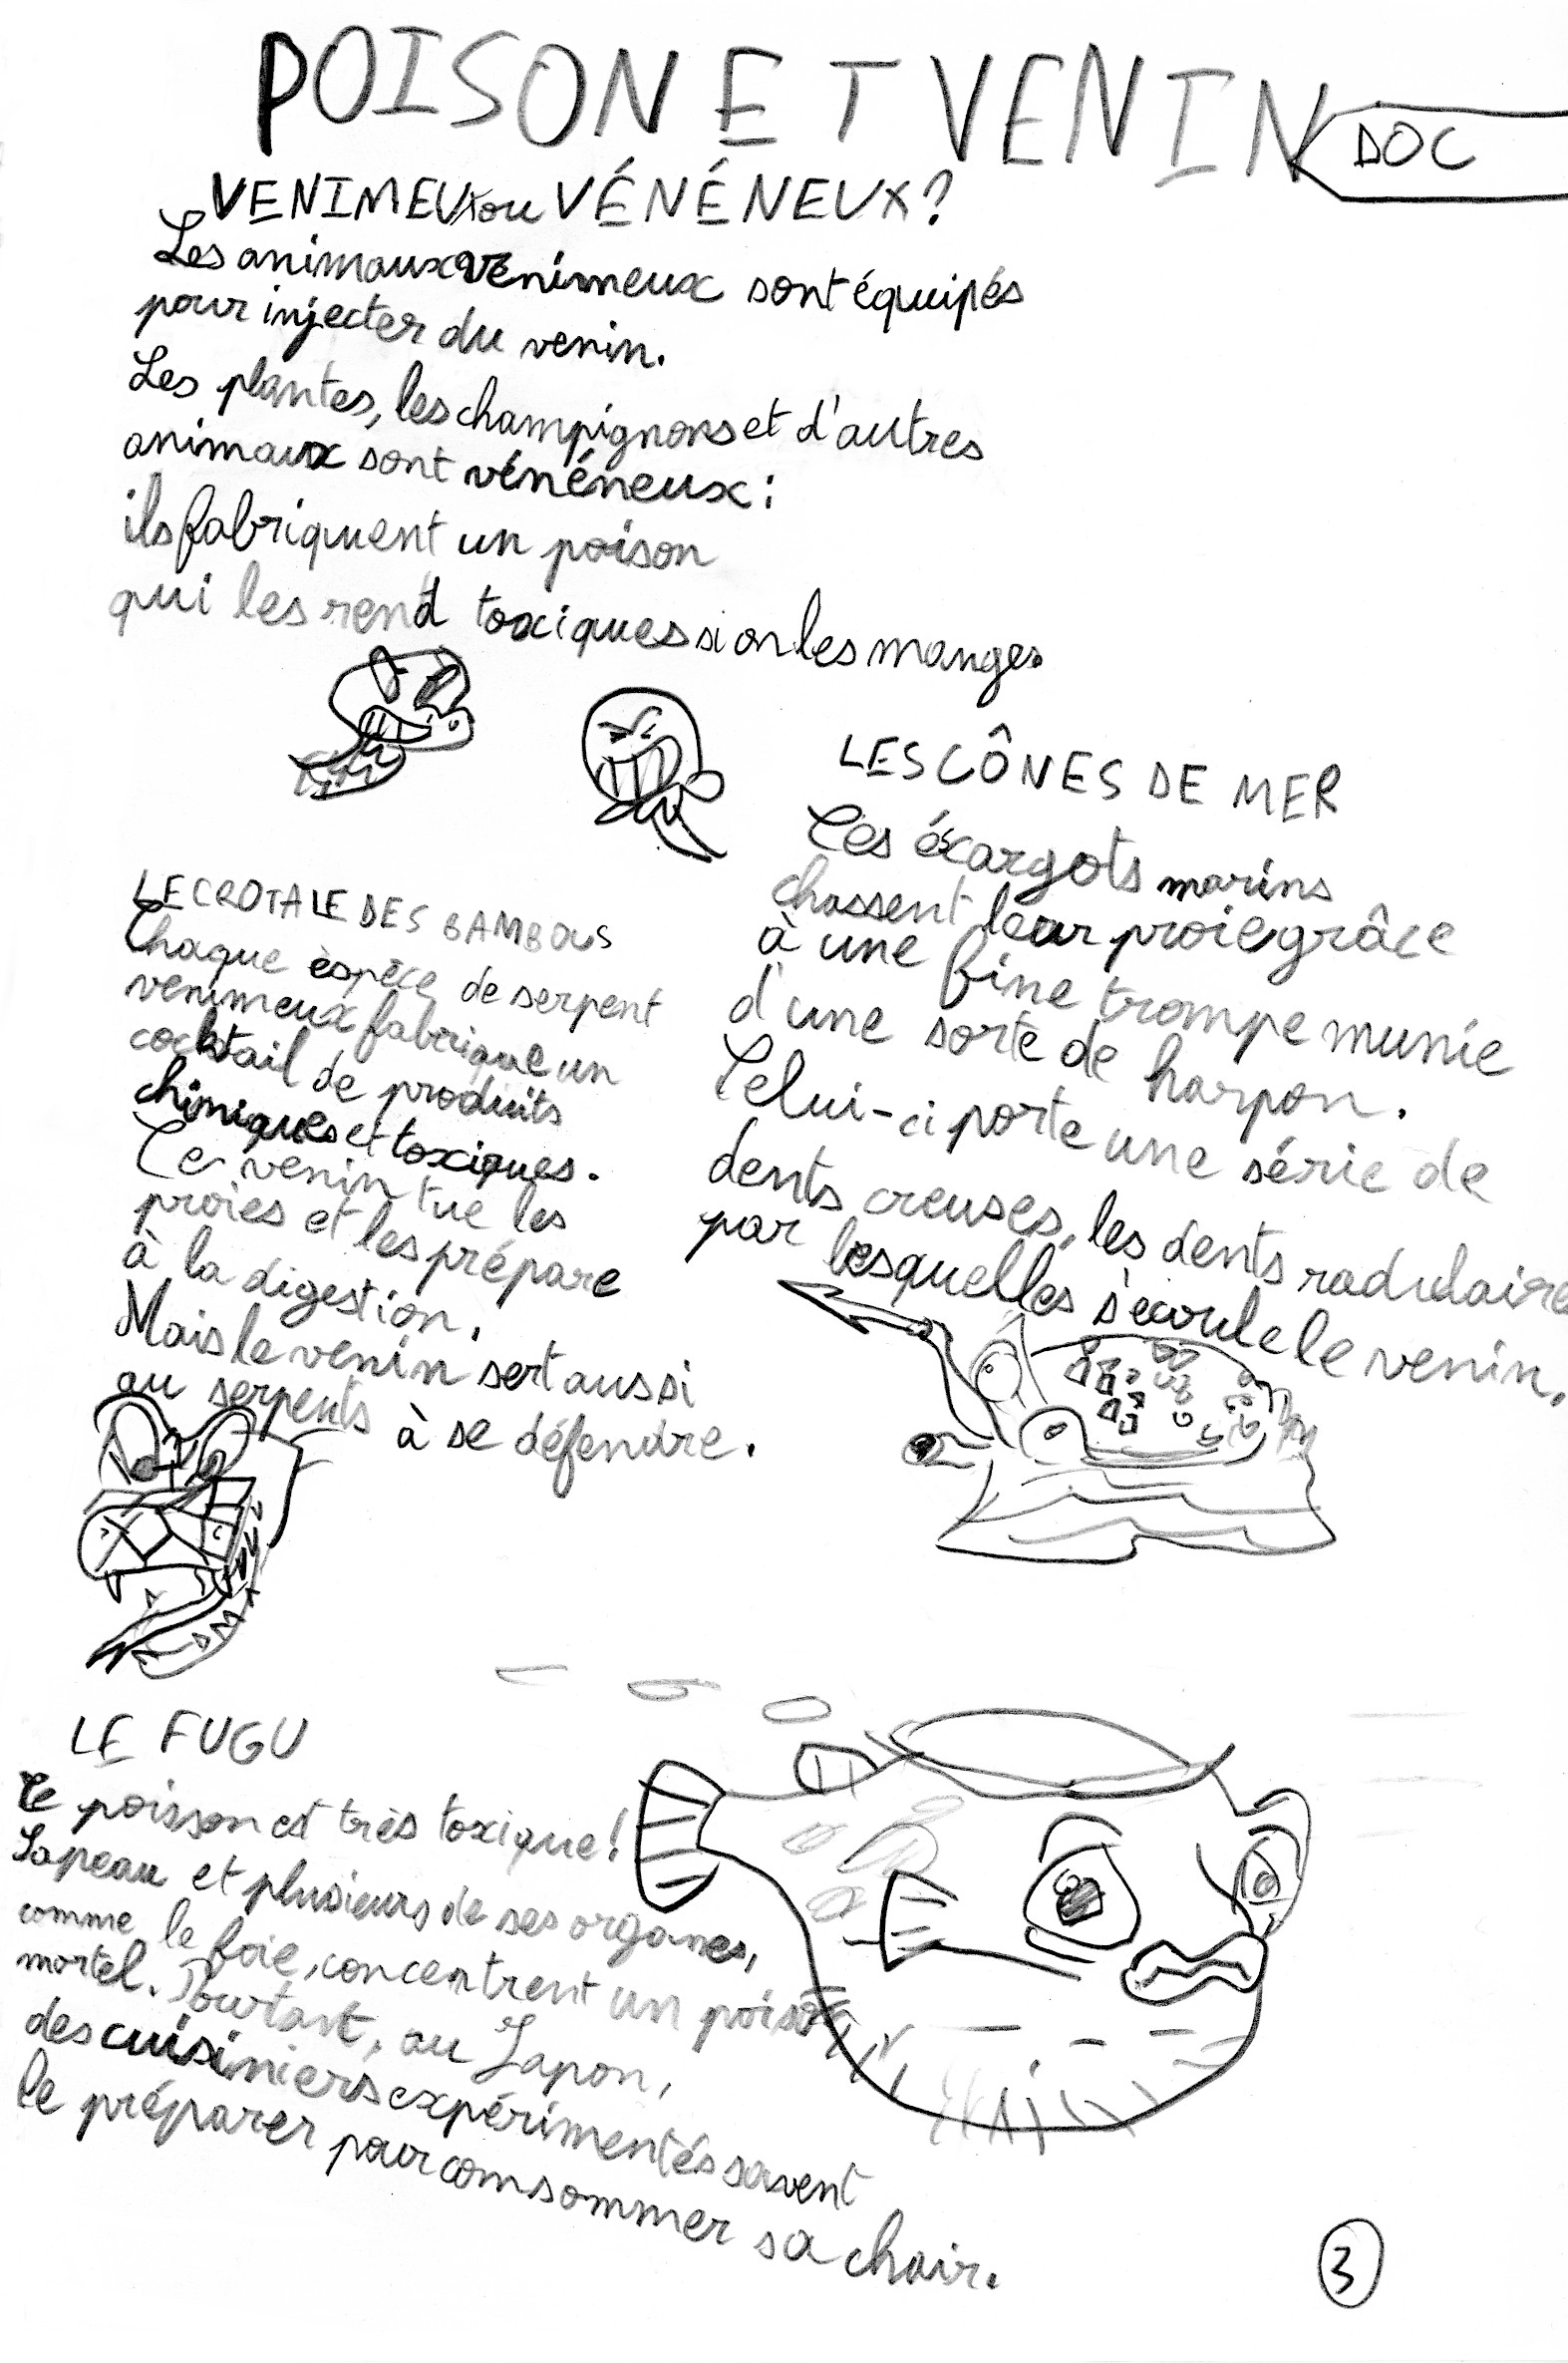 POISON ET VENIN
DOC
VENIMEUX ou VÉNÉNEUX?
Les animaux venimeux sont équipés
pour injecter du venin.
Les plantes, les champignons et d'autres
animaux sont vénéneux:
ils fabriquent un poison
qui les rend toxiques si on les mange.
LES CÔNES DE MER
Ces éscargots marins
chassent leur proie grâce
à une fine trompe munie
d'une sorte de harpon.
Celui-ci porte une série de
dents creuses, les dents radulaire
par lesquelles s'écoule le venin.
LE CROTALE DES BAMBOUS
Chaque èspèce de serpent
venimeux fabrique un
cocktail de produits
chimiques et toxiques.
Ce venin tue les
proies et les prépare
à la digestion.
Mais le venin sert aussi
au serpents à se défendre.
LE FUGU
Ce poisson est très toxique!
Sa peau et plusieurs de ses organes,
comme le foie, concentrent un poison
mortel. Pourtant, au Japon,
des cuisiniers expérimentés savent
le préparer pour comsommer sa chair.
3